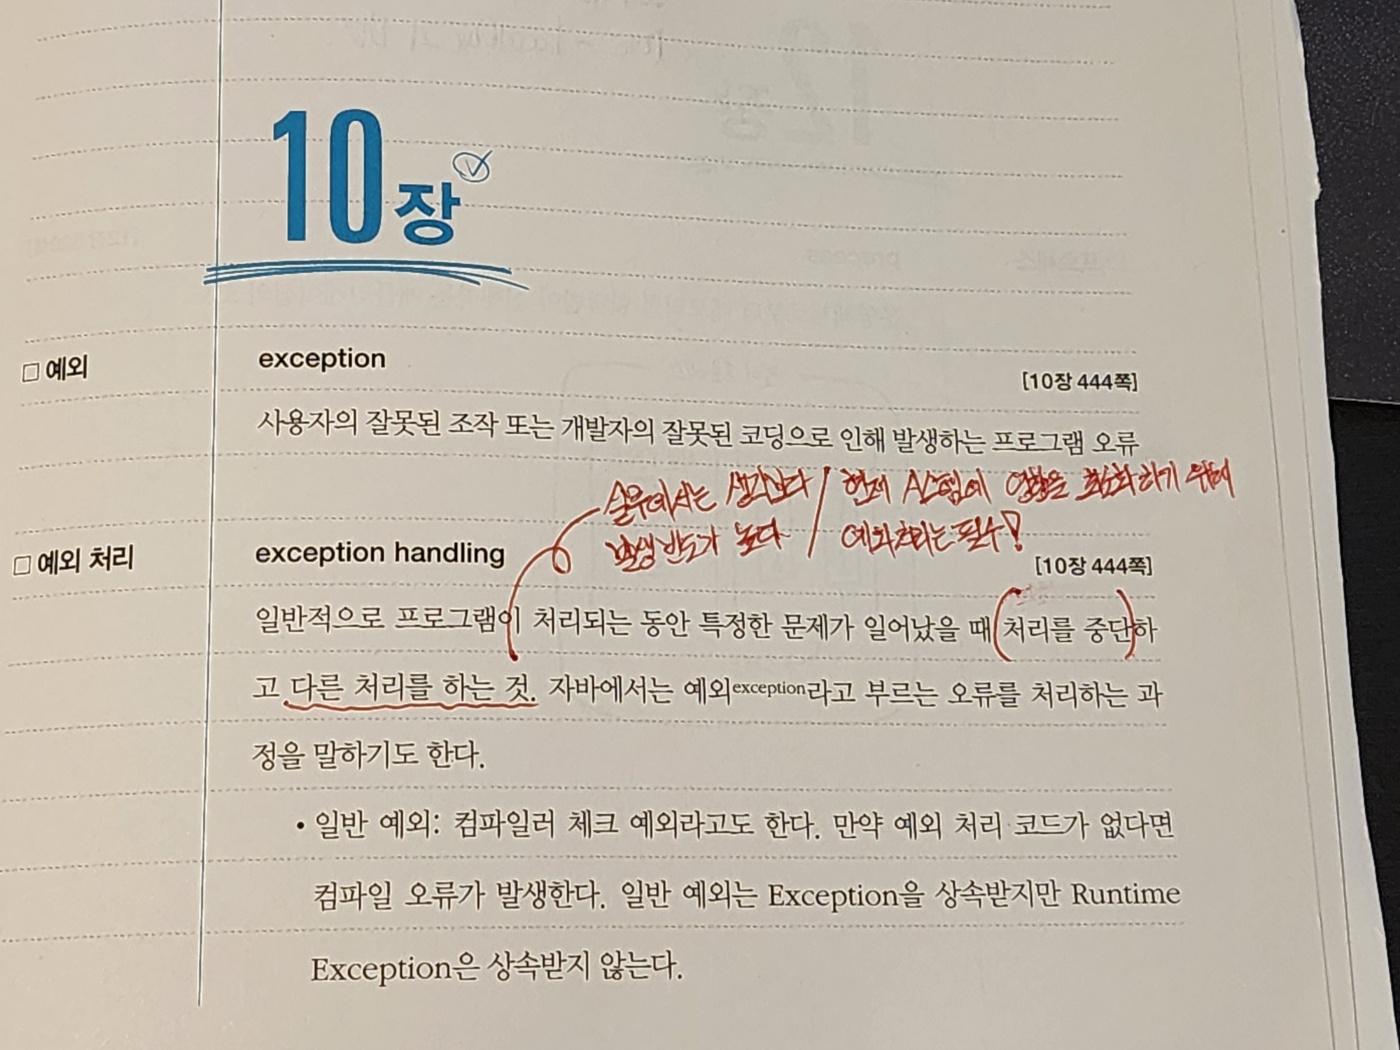 10장
□ 예외 exception [10장 444쪽]
사용자의 잘못된 조작 또는 개발자의 잘못된 코딩으로 인해 발생하는 프로그램 오류
실무에서는 생각보다 / 현재 시스템에 영향을 최소화하기 위해
발생 빈도가 높다 예외처리는 필수!
□ 예외 처리 exception handling [10장 444쪽]
일반적으로 프로그램이 처리되는 동안 특정한 문제가 일어났을 때 (처리를 중단)하
고 다른 처리를 하는 것. 자바에서는 예외exception라고 부르는 오류를 처리하는 과
정을 말하기도 한다.
• 일반 예외: 컴파일러 체크 예외라고도 한다. 만약 예외 처리 코드가 없다면
컴파일 오류가 발생한다. 일반 예외는 Exception을 상속받지만 Runtime
Exception은 상속받지 않는다.